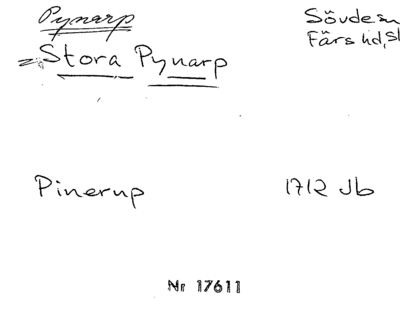 Pynarp
Sövde sn
= Stora Pynarp
Färs hd,
Pinerup 1712 Jb
Nr 17611